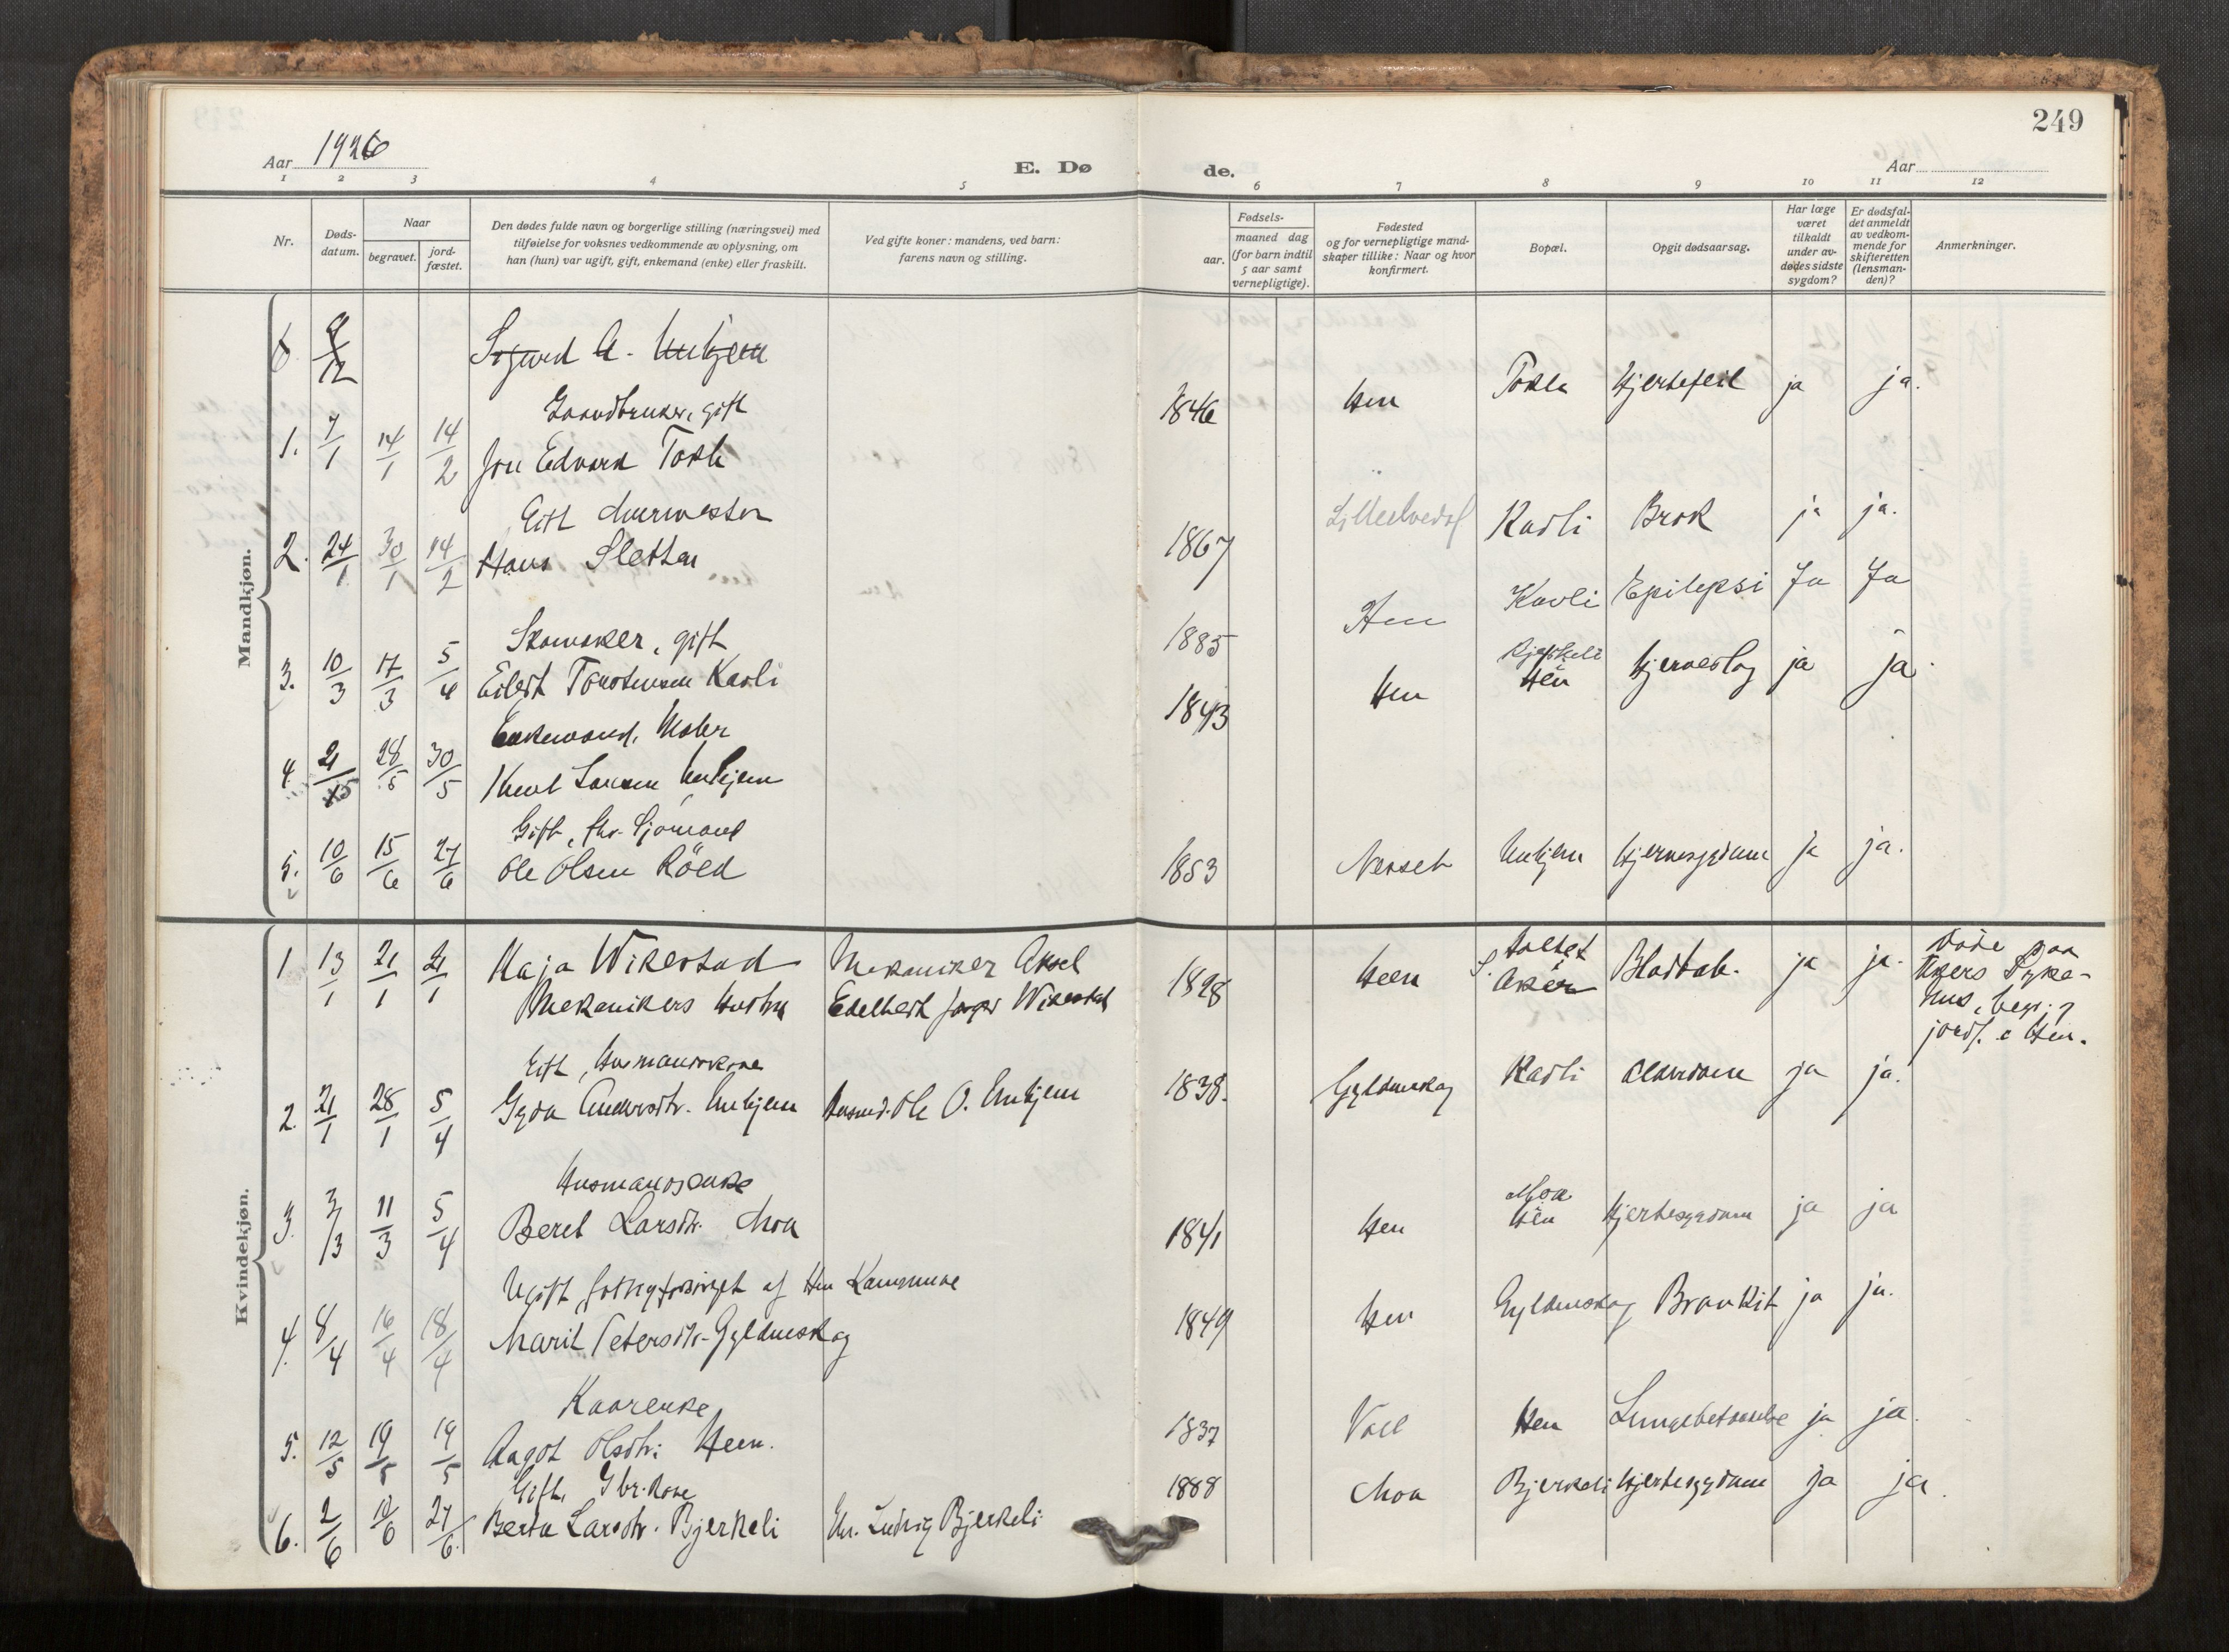 249
Aar 1926
E. Dø
de.
Aar
1 2 3 4 5 6 7 8 9 10 11 12
Nr.
Døds-
datum.
Naar
begravet.
jord-
fæstet.
Den dødes fulde navn og borgerlige stilling (næringsvei) med
tilføielse for voksnes vedkommende av oplysning, om
han (hun) var ugift, gift, enkemand (enke) eller fraskilt.
Ved gifte koner: mandens, ved barn:
farens navn og stilling.
Fødsels-
aar.
maaned dag
(for barn indtil
5 aar samt
vernepligtige).
Fødested
og for vernepligtige mand-
skaper tillike: Naar og hvor
konfirmert.
Bopæl.
Opgit dødsaarsag.
Har læge
været
tilkaldt
under av-
dødes sidste
sygdom?
Er dødsfal-
det anmeldt
av vedkom-
mende for
skifteretten
(lensman-
den)?
Anmerkninger.
Mandkjøn.
Sigurd A. Unhjem
Gaardbruker, gift
1. 7/1 14/1 14/2 Jon Edvard Tokle 1846 Hen Tokle Hjertefeil ja ja.
Gift Murmester
2. 24/1 30/1 14/2 Hans Sletten 1867 Kavli Brok ja ja.
1885 Hen Kavli Epilepsi Ja Ja
Skomaker, gift
3. 10/3 17/3 5/4 Eilert Torstensen Kavli
1843 Hen Hen Hjerneslag ja ja.
Enkemand, Maler
4. 21/5 28/5 30/5 Knut Larsen Unhjem
Gift, fhv. Sjømand
5. 10/6 15/6 27/6 Ole Olsen Röed 1853 Nesset Unhjem Hjernesygdom ja ja.
Kvindekjøn.
1 13/1 21/1 21/1 Kaja Wikestad Mekaniker Aksel 1898 Heen Aker Blodtab. ja ja.
Mekanikers Hustru Edelbert Wikestad
Døde paa
Akers Syke-
hus, begr. og
jordf. i Hen.
Gift, Husmandskone
2. 21/1 28/1 5/4 Gyda Andersdtr. Unhjem Husmd. Ole O. Unhjem 1838. Gyldenskog Kavli Alderdom ja ja.
Husmandsenke
3. 3/3 11/3 5/4 Beret Larsdtr. Moa 1841 Hen Moa Hen Hjertesygdom ja ja
Ugift, fattigforsørget af Hen Kommune
4. 8/4 16/4 18/4 Marit Petersdtr. Gyldenskog 1849 Hen Gyldenskog Bronkit ja ja.
Kaarenke
5. 12/5 19/5 19/5 Aagot Olsdtr. Heen. 1837 Voll Hen Lungebetændelse ja ja.
Gift, Gbr. kone
6. 2/6 10/6 27/6 Berta Larsdtr. Bjerkeli Gbr. Ludvig Bjerkeli 1888 Moa Bjerkeli Hjertesygdom ja ja.